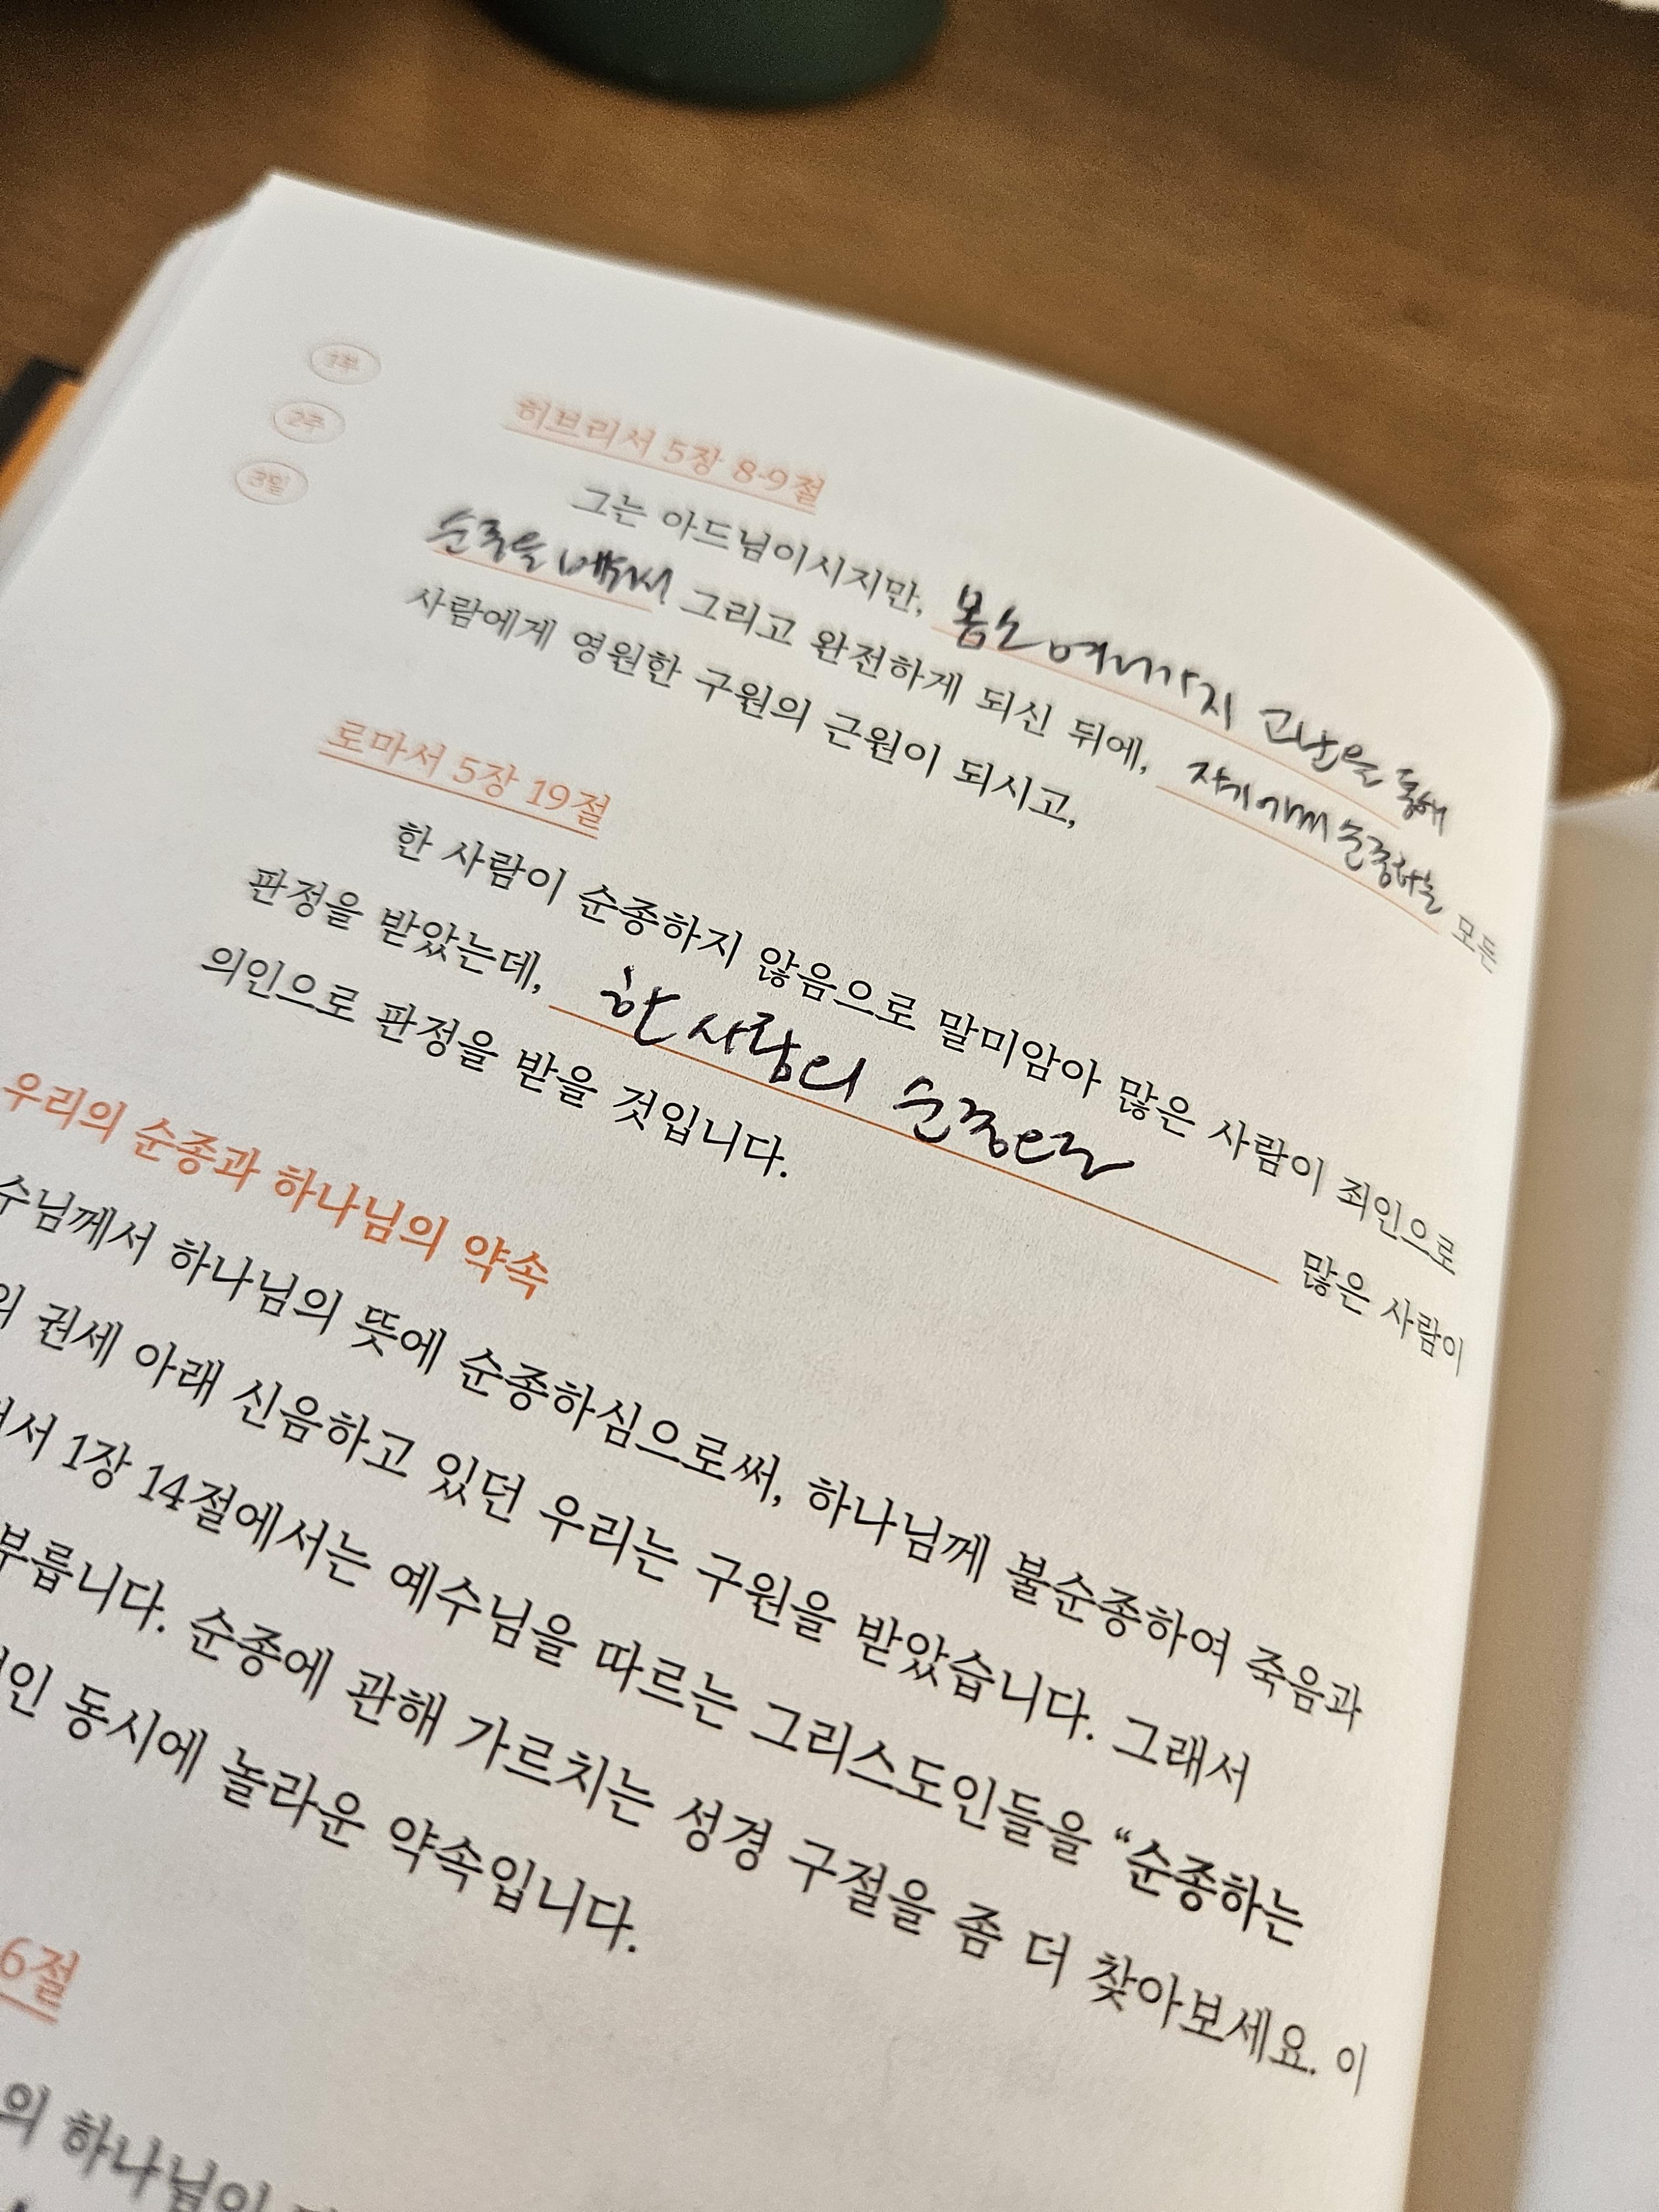 1부
2주
3일
히브리서 5장 8-9절
그는 아드님이시지만, 몸소 여러가지 고난을 통해
순종을 배워서 그리고 완전하게 되신 뒤에, 자기에게 순종하는 모든
사람에게 영원한 구원의 근원이 되시고,
로마서 5장 19절
한 사람이 순종하지 않음으로 말미암아 많은 사람이 죄인으로
판정을 받았는데, 한 사람의 순종으로 많은 사람이
의인으로 판정을 받을 것입니다.
우리의 순종과 하나님의 약속
수님께서 하나님의 뜻에 순종하심으로써, 하나님께 불순종하여 죽음과
의 권세 아래 신음하고 있던 우리는 구원을 받았습니다. 그래서
서 1장 14절에서는 예수님을 따르는 그리스도인들을 “순종하는
부릅니다. 순종에 관해 가르치는 성경 구절을 좀 더 찾아보세요. 이
인 동시에 놀라운 약속입니다.
6절
의 하나님이